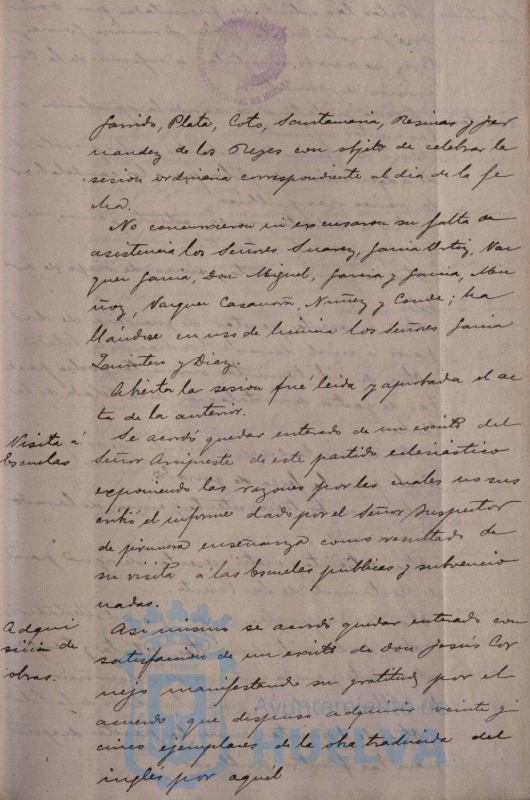 Garrido, Plata, Coto, Santamaria, Resinas y Fer
nandez de los Reyes con objeto de celebrar la
sesion ordinaria correspondiente al dia de la fe
cha.
No concurrieron ni excusaron su falta de
asistencia los Señores Suarez, Garcia Ortiz, Vaz
quez Garcia, Don Miguel, Garcia y Garcia, Mu
ñoz, Vazquez Casanova, Nuñez y Conde; ha
llándose en uso de licencia los Señores Garcia
y Diaz.
Abierta la sesion fué leida y aprobada el ac
ta de la anterior.
Visita á
Escuelas
Se acordó quedar enterado de un escrito del
Señor Arcipreste de este partido eclesiástico
exponiendo las razones por las cuales no sus
cribió el informe dado por el Señor Inspector
de primera enseñanza como resultado de
su visita á las Escuelas públicas y subvencio
nadas.
Adqui
sición de
obras.
Asi mismo se acordó quedar enterado con
satisfaccion de un escrito de don Jesús Cor
nejo manifestando su gratitud por el
acuerdo que dispuso adquirir veinte y
cinco ejemplares de la obra traducida del
inglés por aquél
Ayuntamiento de
HUELVA